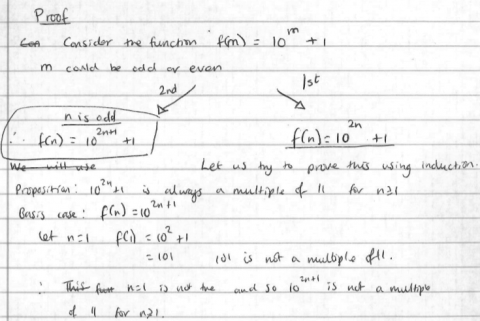 Proof
Consider the function f(m) = 10^m + 1
m could be odd or even
2nd
1st
n is odd
∴ f(n) = 10^{2n+1} + 1
f(n) = 10^{2n} + 1
We will use
Let us try to prove this using induction.
Proposition: 10^{2n}+1 is always a multiple of 11 for n≥1
Basis case: f(n) = 10^{2n+1}
let n=1 f(1) = 10^2 + 1
= 101 101 is not a multiple of 11.
∴ This n=1 is not true and so 10^{2n+1} is not a multiple
of 11 for n≥1.